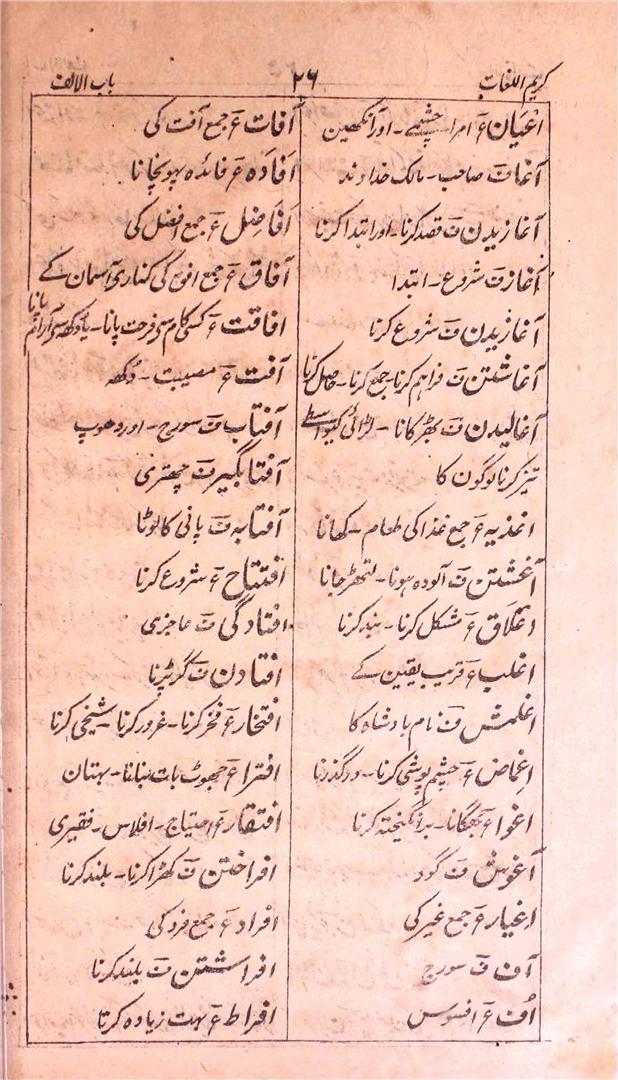 کریم اللغات
۲۶
باب الالف
اعیان ع امرا چشمے۔ اور آنکھین
آغات صاحب۔ مالک خداوند
آغازیدن ف قصد کرنا۔ اور ابتدا کرنا
آغاز ف شروع۔ ابتدا
آغازیدن ف شروع کرنا
آغاشتن ف فراہم کرنا۔ جمع کرنا۔ حاصل کرنا
آغالیدن ف بھڑکانا۔ لڑائی کیواسطے
تیز کرنا لوگون کا
اغذیہ ع جمع غذا کی طعام۔ کھانا
آغشتن ف آلودہ ہونا۔ لتھڑ جانا
اغلاق ع مشکل کرنا۔ بند کرنا
اغلب ع قریب یقین کے
اغلمش ف نام بادشاہ کا
اغماض ع چشم پوشی کرنا۔ درگذرنا
اغوا ع بھگانا۔ برانگیختہ کرنا
آغوش ف گود
اغیار ع جمع غیر کی
آف ف سورج
اُف ع افسوس
آفات ع جمع آفت کی
افادہ ع فائدہ پہونچانا
افاضل ع جمع افضل کی
آفاق ع جمع افق کی کناری آسمان کے
افاقت ع کسی کام سی فرحت پانا۔ یا دکھ سی آرام پانا
آفت ع مصیبت۔ دکھ
آفتاب ف سورج۔ اور دھوپ
آفتابگیر ف چھتری
آفتابہ ف پانی کا لوٹا
افتتاح ع شروع کرنا
افتادگی ف عاجزی
افتادن ف گر پڑنا
افتخار ع فخر کرنا۔ غرور کرنا۔ شیخی کرنا
افترا ع جھوٹ بات بنانا۔ بہتان
افتقار ع احتیاج۔ افلاس۔ فقیری
افراختن ف کھڑا کرنا۔ بلند کرنا
افراد ع جمع فرد کی
افراشتن ف بلند کرنا
افراط ع بہت زیادہ کرنا